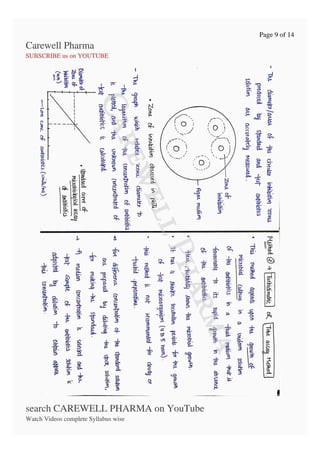 Page 9 of 14
Carewell Pharma
SUBSCRIBE us on YOUTUBE
CAREWELL PHARMA
- The diameter/area of the circular inhibition zones
produced by standard and test antibiotics
solution are accurately measured.
Zone of
inhibition
Agar medium
• Zone of inhibition observed in plate
- The graph which relates zone diameter to
the logarithm of the concentration of antibiotic
is plotted, and the unknown concentration of
test antibiotic is calculated.
Diameter of
Zone of
Inhibition
(mm)
• Standard curve of
microbiological assay
of antibiotics
Method ② → Turbidimetric or Tube assay Method
• This method depends upon the growth of
microbial culture in a uniform solution
of the antibiotics in a fluid medium that is
favourable to its rapid growth in the absence
of the antibiotics.
• It has a shorter incubation periods for the growth
of test microorganism (3 to 5 hours)
• this method is not recommended for cloudy or
turbid preparations.
⇒ Five different concentration of the standard solution
are prepared by diluting the stock solution,
for making the standard.
⇒ A medium concentration is selected and the
test sample of the antibiotics solution is
adjusted by dilution to obtain approx.
this concentration.
search CAREWELL PHARMA on YouTube
Watch Videos complete Syllabus wise